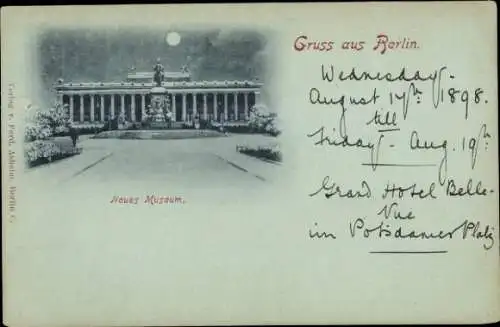 Gruss aus Berlin.
Wednesday.
August 17th 1898.
till
Friday - Aug. 19th
Grand Hotel Belle-
Vue
im Potsdamer Platz
Neues Museum.
Verlag v. Ferd. Ashelm Berlin C.